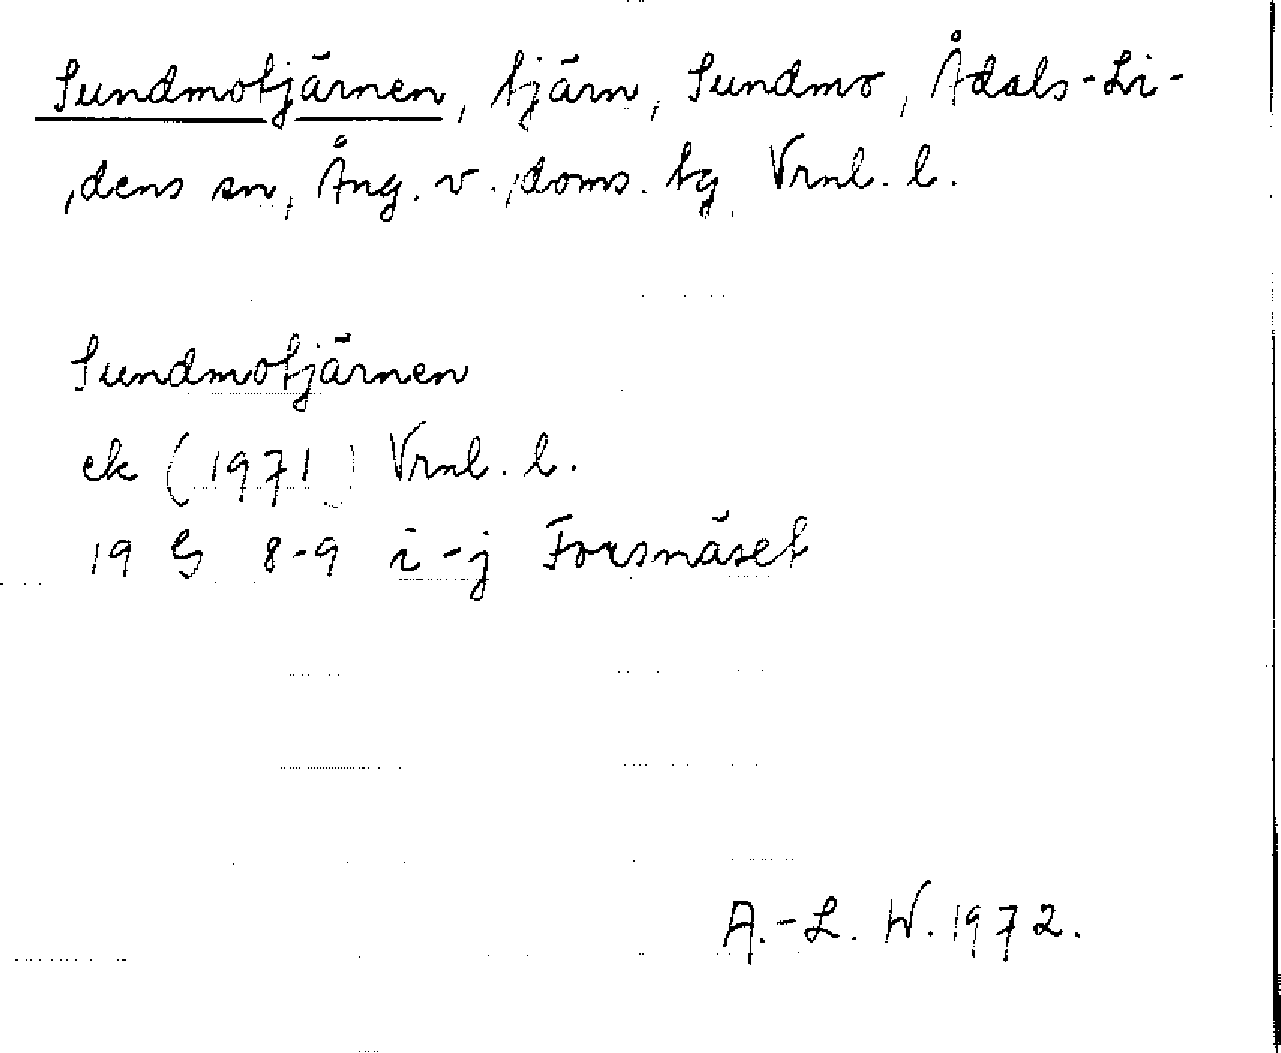 Sundmotjärnen, tjärn, Sundmo, Ådals-Li-
dens sn, Ång. v. doms. tg Vrnl. l.
Sundmotjärnen
ek (1971) Vrnl. l.
19 G 8-9 i-j Forsnäset
A.-L. W. 1972.